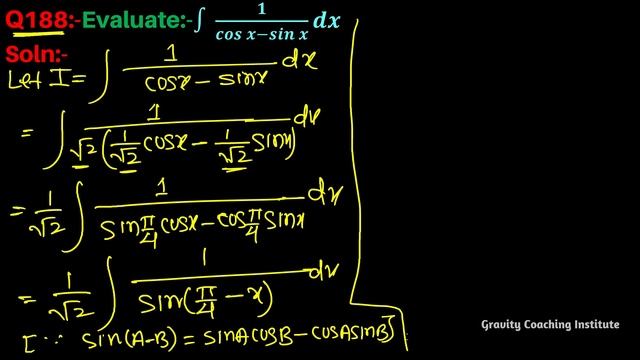 Q188:-Evaluate:-∫ 1/(cos x−sin x) dx
Soln:-
Let I = ∫ 1/(cosx − sinx) dx
= ∫ 1/(√2 (1/√2 cosx − 1/√2 sinx)) dx
= 1/√2 ∫ 1/(sin π/4 cosx − cos π/4 sinx) dx
= 1/√2 ∫ 1/(sin(π/4 − x)) dx
[∵ sin(A−B) = sinAcosB − cosAsinB]
Gravity Coaching Institute